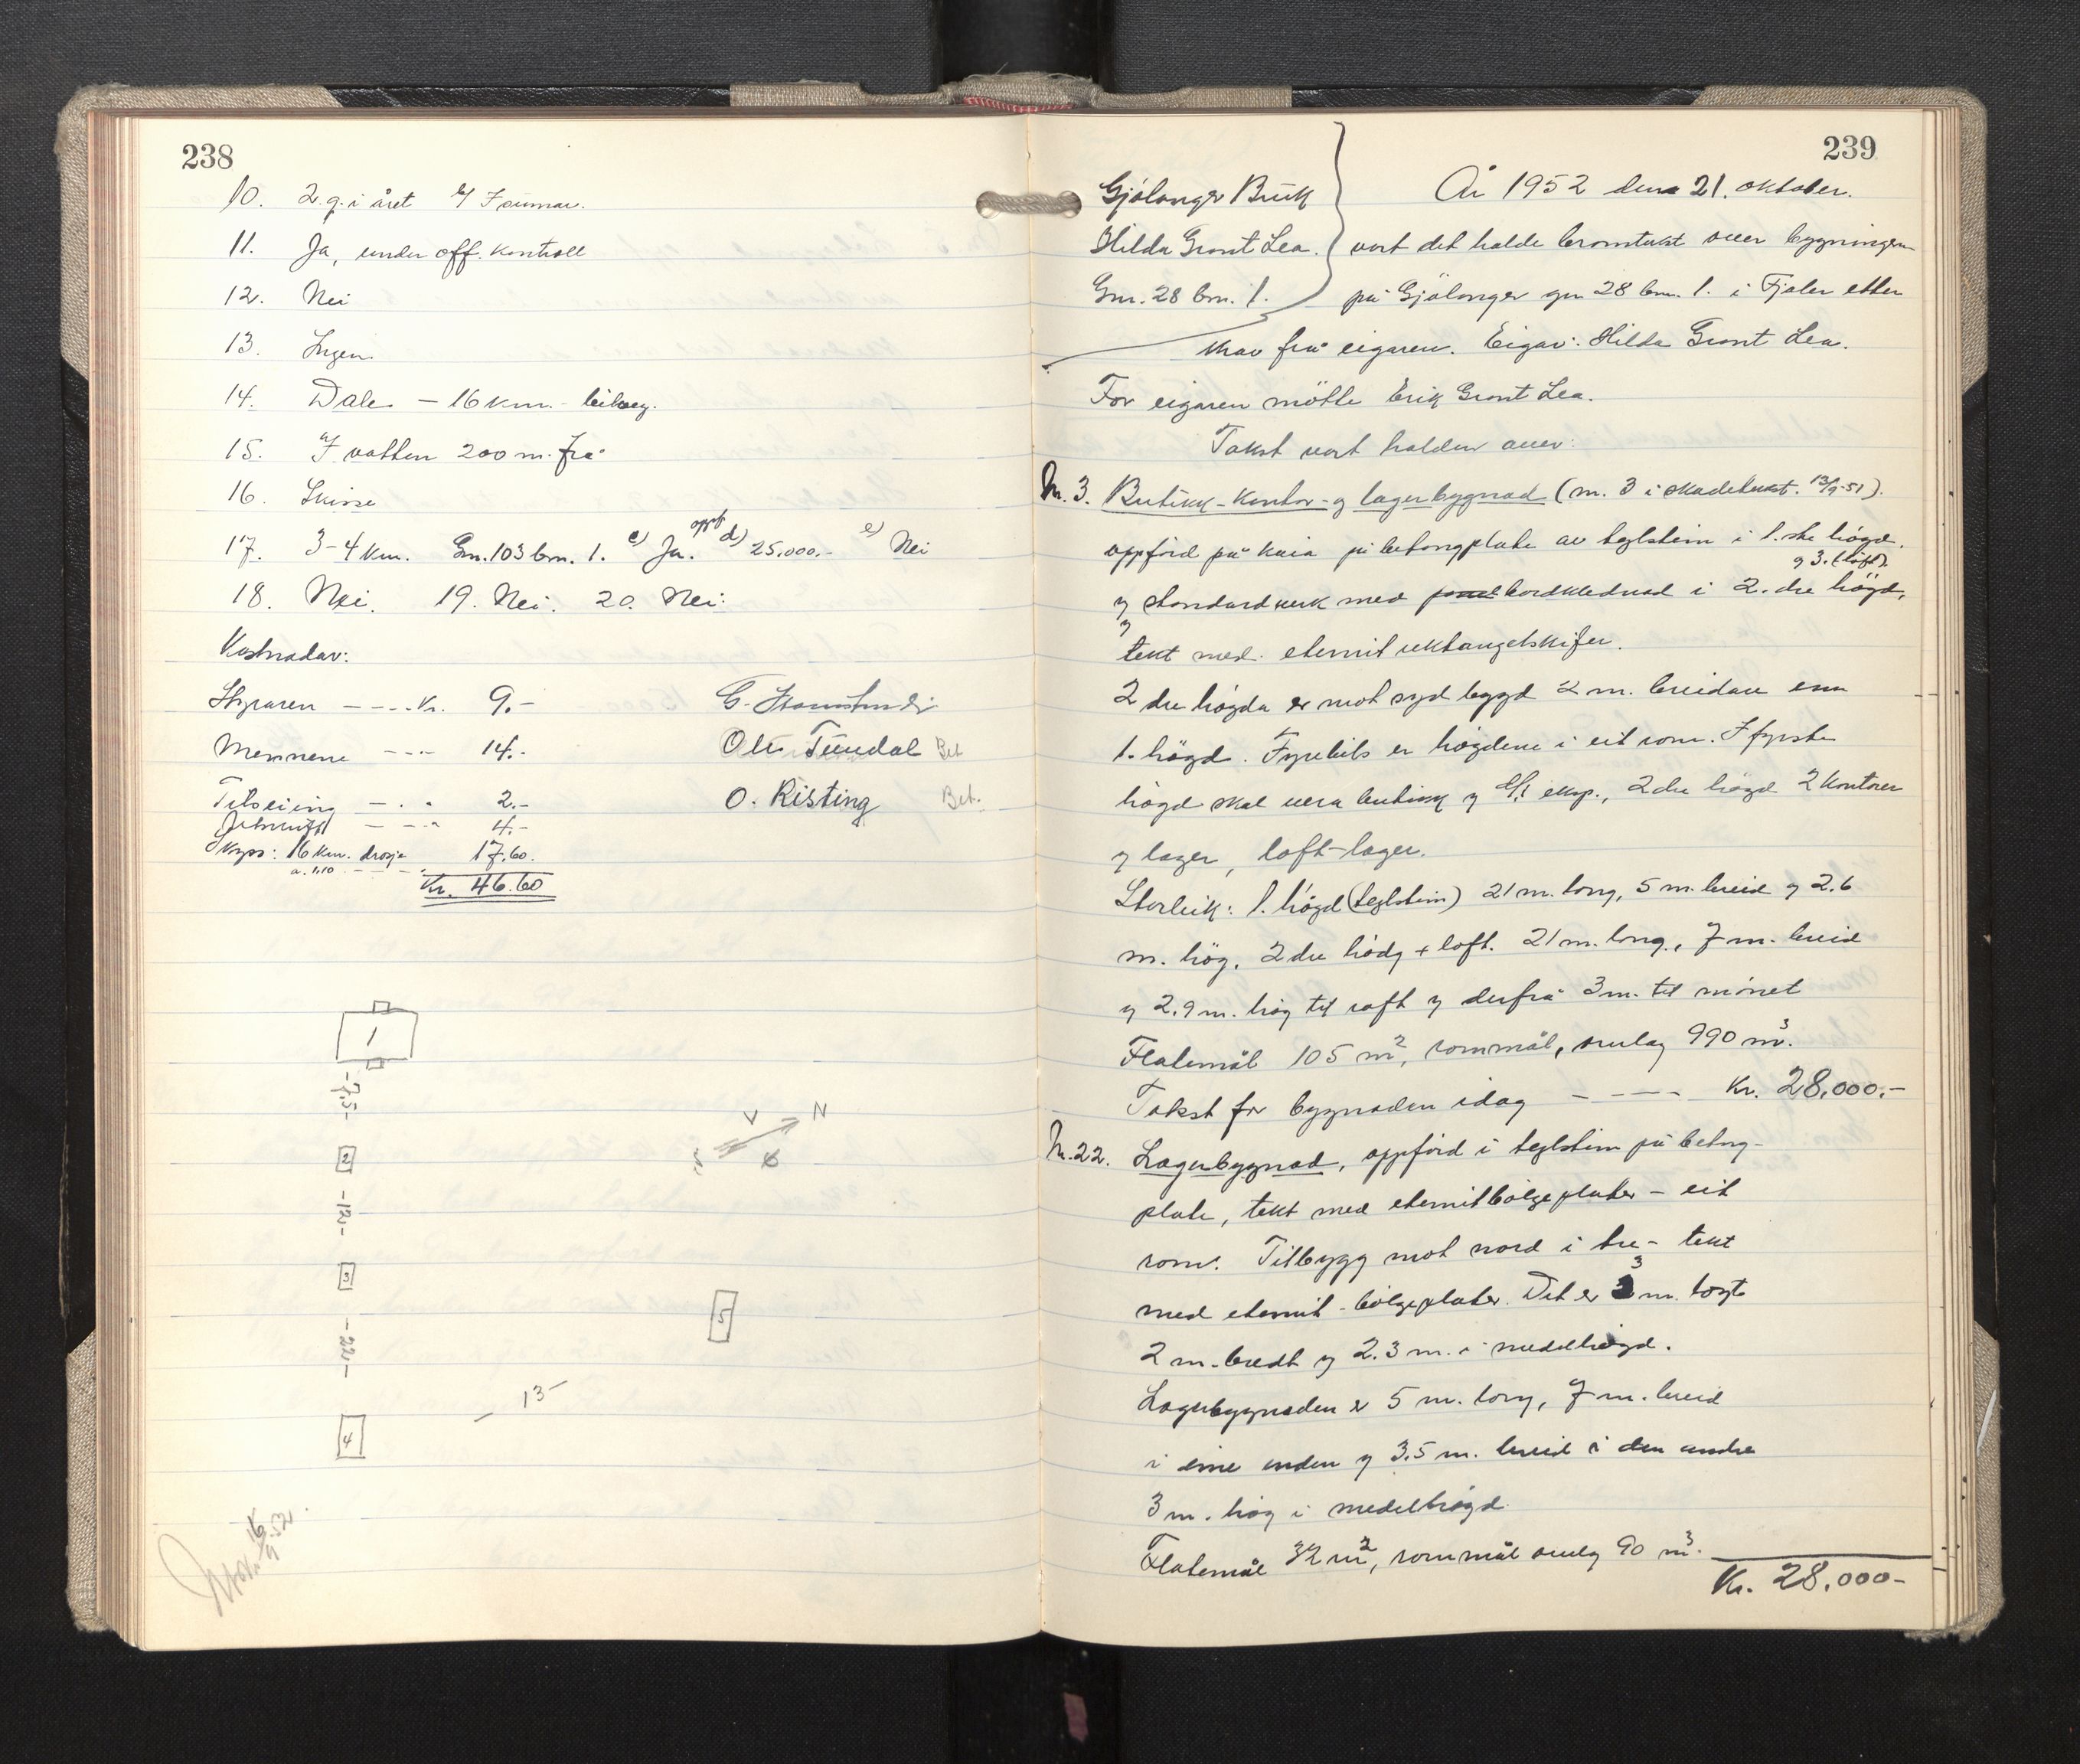 238
10. 2 g. i året 4/ I sumar.
11. Ja, under off. kontroll
12. Nei
13. Ingen
14. Dale – 16 km. – bilveg.
15. I vatten 200 m. frå
16. Skisse
17. 3-4 km. Gn. 103 bn. 1. c) Ja. oppt d) 25.000.- e) Nei
18. Nei. 19. Nei. 20. Nei.
Kostnadar:
Styraren - - - - Kr. 9.-
Mennene - - - 14.-
Tilseiing - . " 2.-
Utskrift - - - " 4.-
Skyss: 16 km. drosje 17.60.
a. 1.10 - - - -
Kr. 46.60
Ole Tundal Bet
O. Risting Bet.
1
- 7,5 -
2
- 12 -
3
- 22 -
4
5
13
V N
S Ö
239
Gjölanger Bruk
Hilda Gront Lea.
Gnr. 28 bn. 1.
År 1952 den 21. oktober.
vart det halde branntakst over bygningen
på Gjölanger gn 28 bn. 1. i Fjaler etter
krav frå eigaren. Eigar: Hilda Gront Lea.
For eigaren mötte Erik Gront Lea.
Takst vart halden over:
Nr. 3. Butikk- Kontor- og lagerbygnad (nr. 3 i skadetakst. 13/9-51).
oppförd på kaia på betongplate av teglstein i 1.ste högd.
og standardverk med bordklednad i 2. dre högd, og 3. (loft).
og tekt med eternit rektangelskifer.
2 dre högda er mot syd bygd 2 m. breidare enn
1. högd. Fyrebils er högdene i eit rom. I fyrste
högd skal vera butikk og eksp., 2 dre högd 2 kontorer
og lager, loft-lager.
Storleik: 1. högd (teglstein) 21 m. long, 5 m. breid og 2.6
m. hög. 2 dre hödg + loft. 21 m. long., 7 m. breid
og 2.9 m. hög til raft og derfrå 3 m. til mönet
Flatemål 105 m², rommål, omlag 990 m³.
Takst for bygnaden idag - - - - - Kr. 28.000.-
Nr. 22. Lagerbygnad, oppförd i teglstein på betong-
plate, tekt med eternitbölgeplater - eit
rom. Tilbygg mot nord i tre - tekt
med eternit - bölgeplater. Det er 3 m. longt
2 m. bredt og 2.3 m. i medelhögd.
Lagerbygnaden er 5 m. long, 7 m. breid
i eine enden og 3.5 m. breid i den andre
3 m. hög i medelhögd.
Flatemål 32 m², rommål omlag 90 m³.
Kr. 28.000-